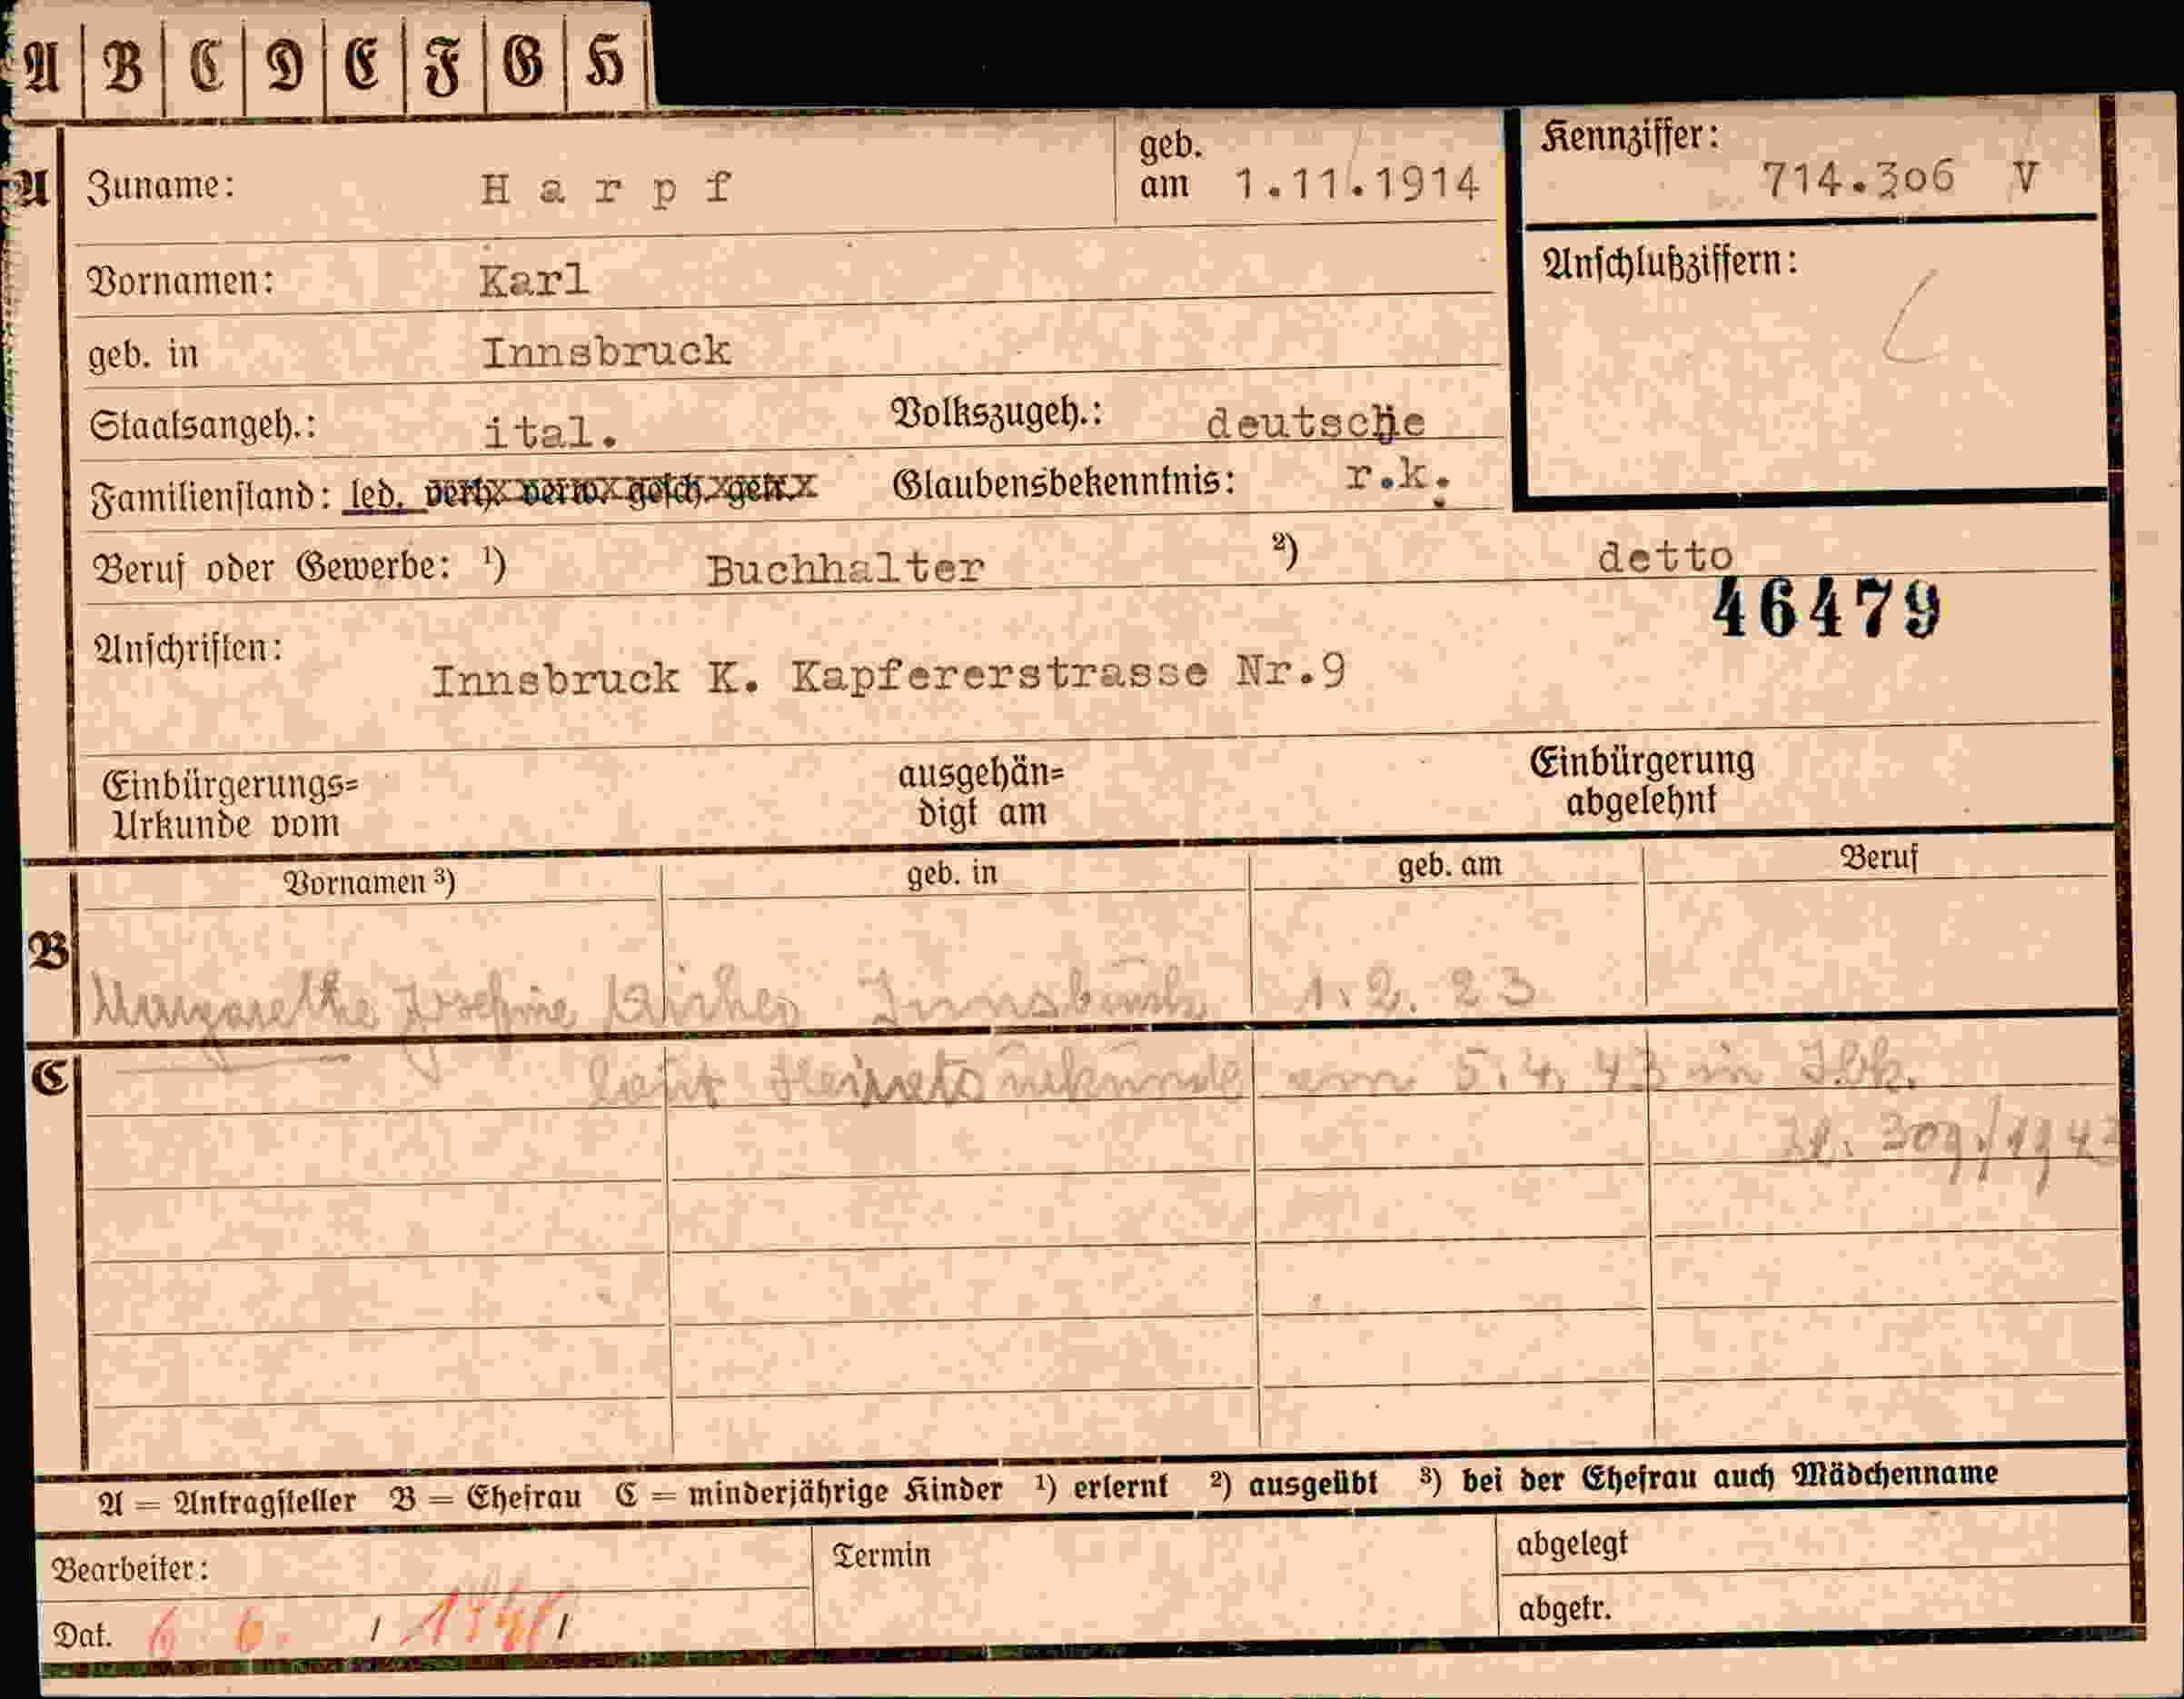 A B C D E F G H
A Zuname: Harpf geb. am 1.11.1914 Kennziffer: 714.306 V
Vornamen: Karl Anschlußziffern:
geb. in Innsbruck
Staatsangeh.: ital. Volkszugeh.: deutsche
Familienstand: led. verh. verw. gesch. getr. Glaubensbekenntnis: r.k.
Beruf oder Gewerbe: ¹) Buchhalter ²) detto
46479
Anschriften: Innsbruck K. Kapfererstrasse Nr.9
Einbürgerungs= Urkunde vom ausgehän= digt am Einbürgerung abgelehnt
Vornamen ³) geb. in geb. am Beruf
B Margarethe Josefine Innsbruck 1.2.23
C laut Heiratsurkunde vom 5.4.43 in Ibk.
309/1943
A = Antragsteller B = Ehefrau C = minderjährige Kinder ¹) erlernt ²) ausgeübt ³) bei der Ehefrau auch Mädchenname
Bearbeiter: Termin abgelegt
Dat. abgetr.